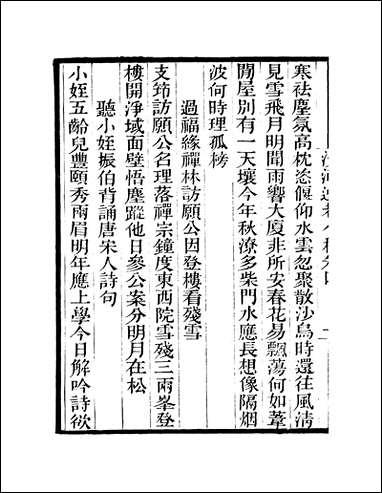 寒祛塵氛高枕恣偃仰水雲忽聚散沙鳥時還往風淸
見雪飛月明聞雨響大厦非所安春花易飄蕩何如葦
間屋別有一天壤今年秋潦多柴門水應長想像隔烟
波何時理孤榜
過福緣禪林訪願公因登樓看殘雪
支筇訪願公名理落禪宗鐘度東西院雪殘三兩峯登
樓開淨域面壁悟塵蹤他日參公案分明月在松
聽小姪振伯背誦唐宋人詩句
小姪五齡兒豐頤秀兩眉明年應上學今日解吟詩欲